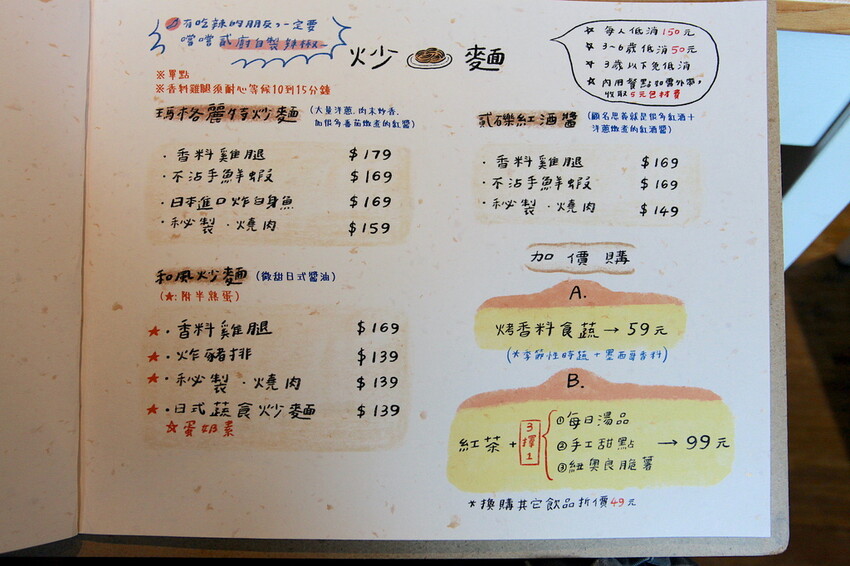 有吃辣的朋友,一定要
嚐嚐貳廚自製辣椒~
炒 麵
☆ 每人低消150元
☆ 3~6歲低消50元
☆ 3歲以下免低消
☆ 內用餐點如需外帶,
收取5元包材費
※單點
※香料雞腿須耐心等候10到15分鐘
瑪格麗特炒麵
(大量洋蔥,肉末炒香,
加很多番茄燉煮的紅醬)
· 香料雞腿 $179
· 不沾手鮮蝦 $169
· 日本進口炸白身魚 $169
· 秘製·燒肉 $159
貳礫紅酒醬
(顧名思義就是很多紅酒+
洋蔥燉煮的紅酒醬)
· 香料雞腿 $169
· 不沾手鮮蝦 $169
· 秘製·燒肉 $149
和風炒麵 (微甜日式醬油)
(★:附半熟蛋)
★· 香料雞腿 $169
★· 炸豬排 $139
★· 秘製·燒肉 $139
★· 日式蔬食炒麵 $139
☆蛋奶素
加價購
A.
烤香料食蔬→59元
(*季節性時蔬+墨西哥香料)
B.
紅茶+3擇1
①每日湯品
②手工甜點
③紐奧良脆薯
→99元
*換購其它飲品折價49元